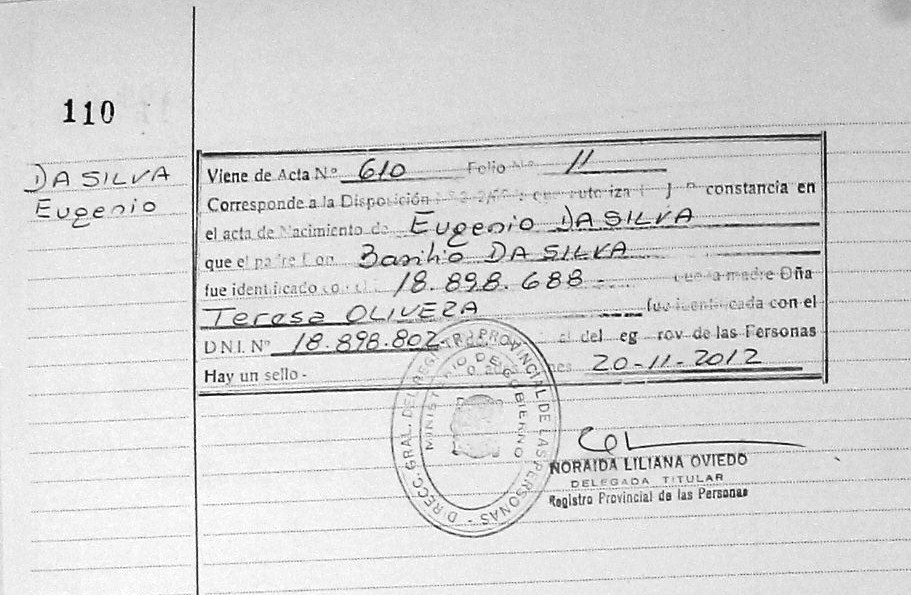 110
DASILVA
Eugenio
Viene de Acta Nº 610 Folio Nº 11
Corresponde a la Disposición constancia en
el acta de Nacimiento de Eugenio DASILVA
que el padre Don Basilio DA SILVA
fue identificado 18.898.688 - que la madre Dña
Teresa OLIVERA fue identificada con el
D.N.I. Nº 18.898.802 del de las Personas
Hay un sello - 20-11-2012
DIRECC. GRAL. DEL REGISTRO PROVINCIAL DE LAS PERSONAS -
MINISTERIO DE GOBIERNO
NORAIDA LILIANA OVIEDO
DELEGADA TITULAR
Registro Provincial de las Personas